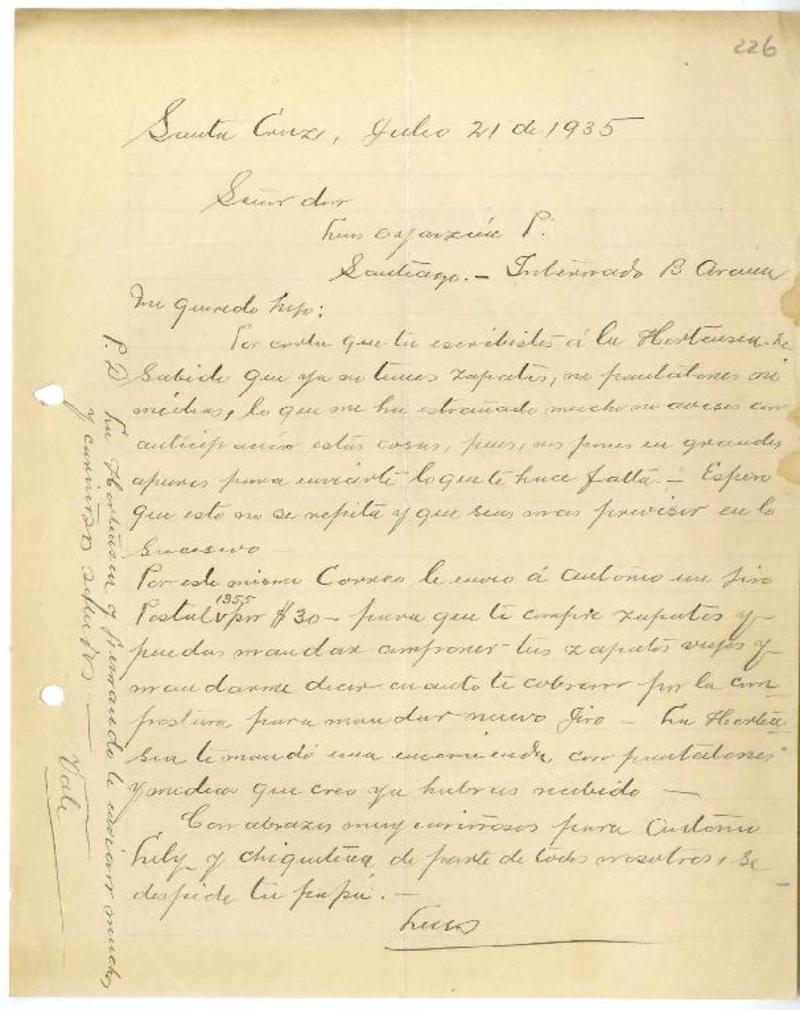 226
Santa Cruz, Julio 21 de 1935
Señor don
Luis Oyarzún P.
Santiago.- Internado B Arana
Mi querido hijo:
Por carta que tu escribistes á la Hortensia he
sabido que ya no tienes zapatos, ni pantalones ni
médias, lo que me ha estrañado mucho no avises con
anticipación estas cosas, pues, nos pones en grandes
apuros para enviarte lo que te hace falta.- Espero
que esto no se repita y que seas mas previsor en lo
sucesivo-
Por este mismo Correo le envio á Antonio un jiro
Postal 1355 por $30- para que te compre zapatos y
puedas mandar componer tus zapatos viejos y
mandarme decir cuanto te cobraron por la com
postura para mandar nuevo jiro - La Horten
sia te mandó una encomienda con pantalones
y medias que creo ya habras recibido —
Con abrazos muy cariñosos para Antonio
Lily y chiquitina de parte de todos nosotros, se
despide tu papá.-
Luis
P.D La Hortensia y Fernando le envian muchos
y cariñosos saludos —
Vale